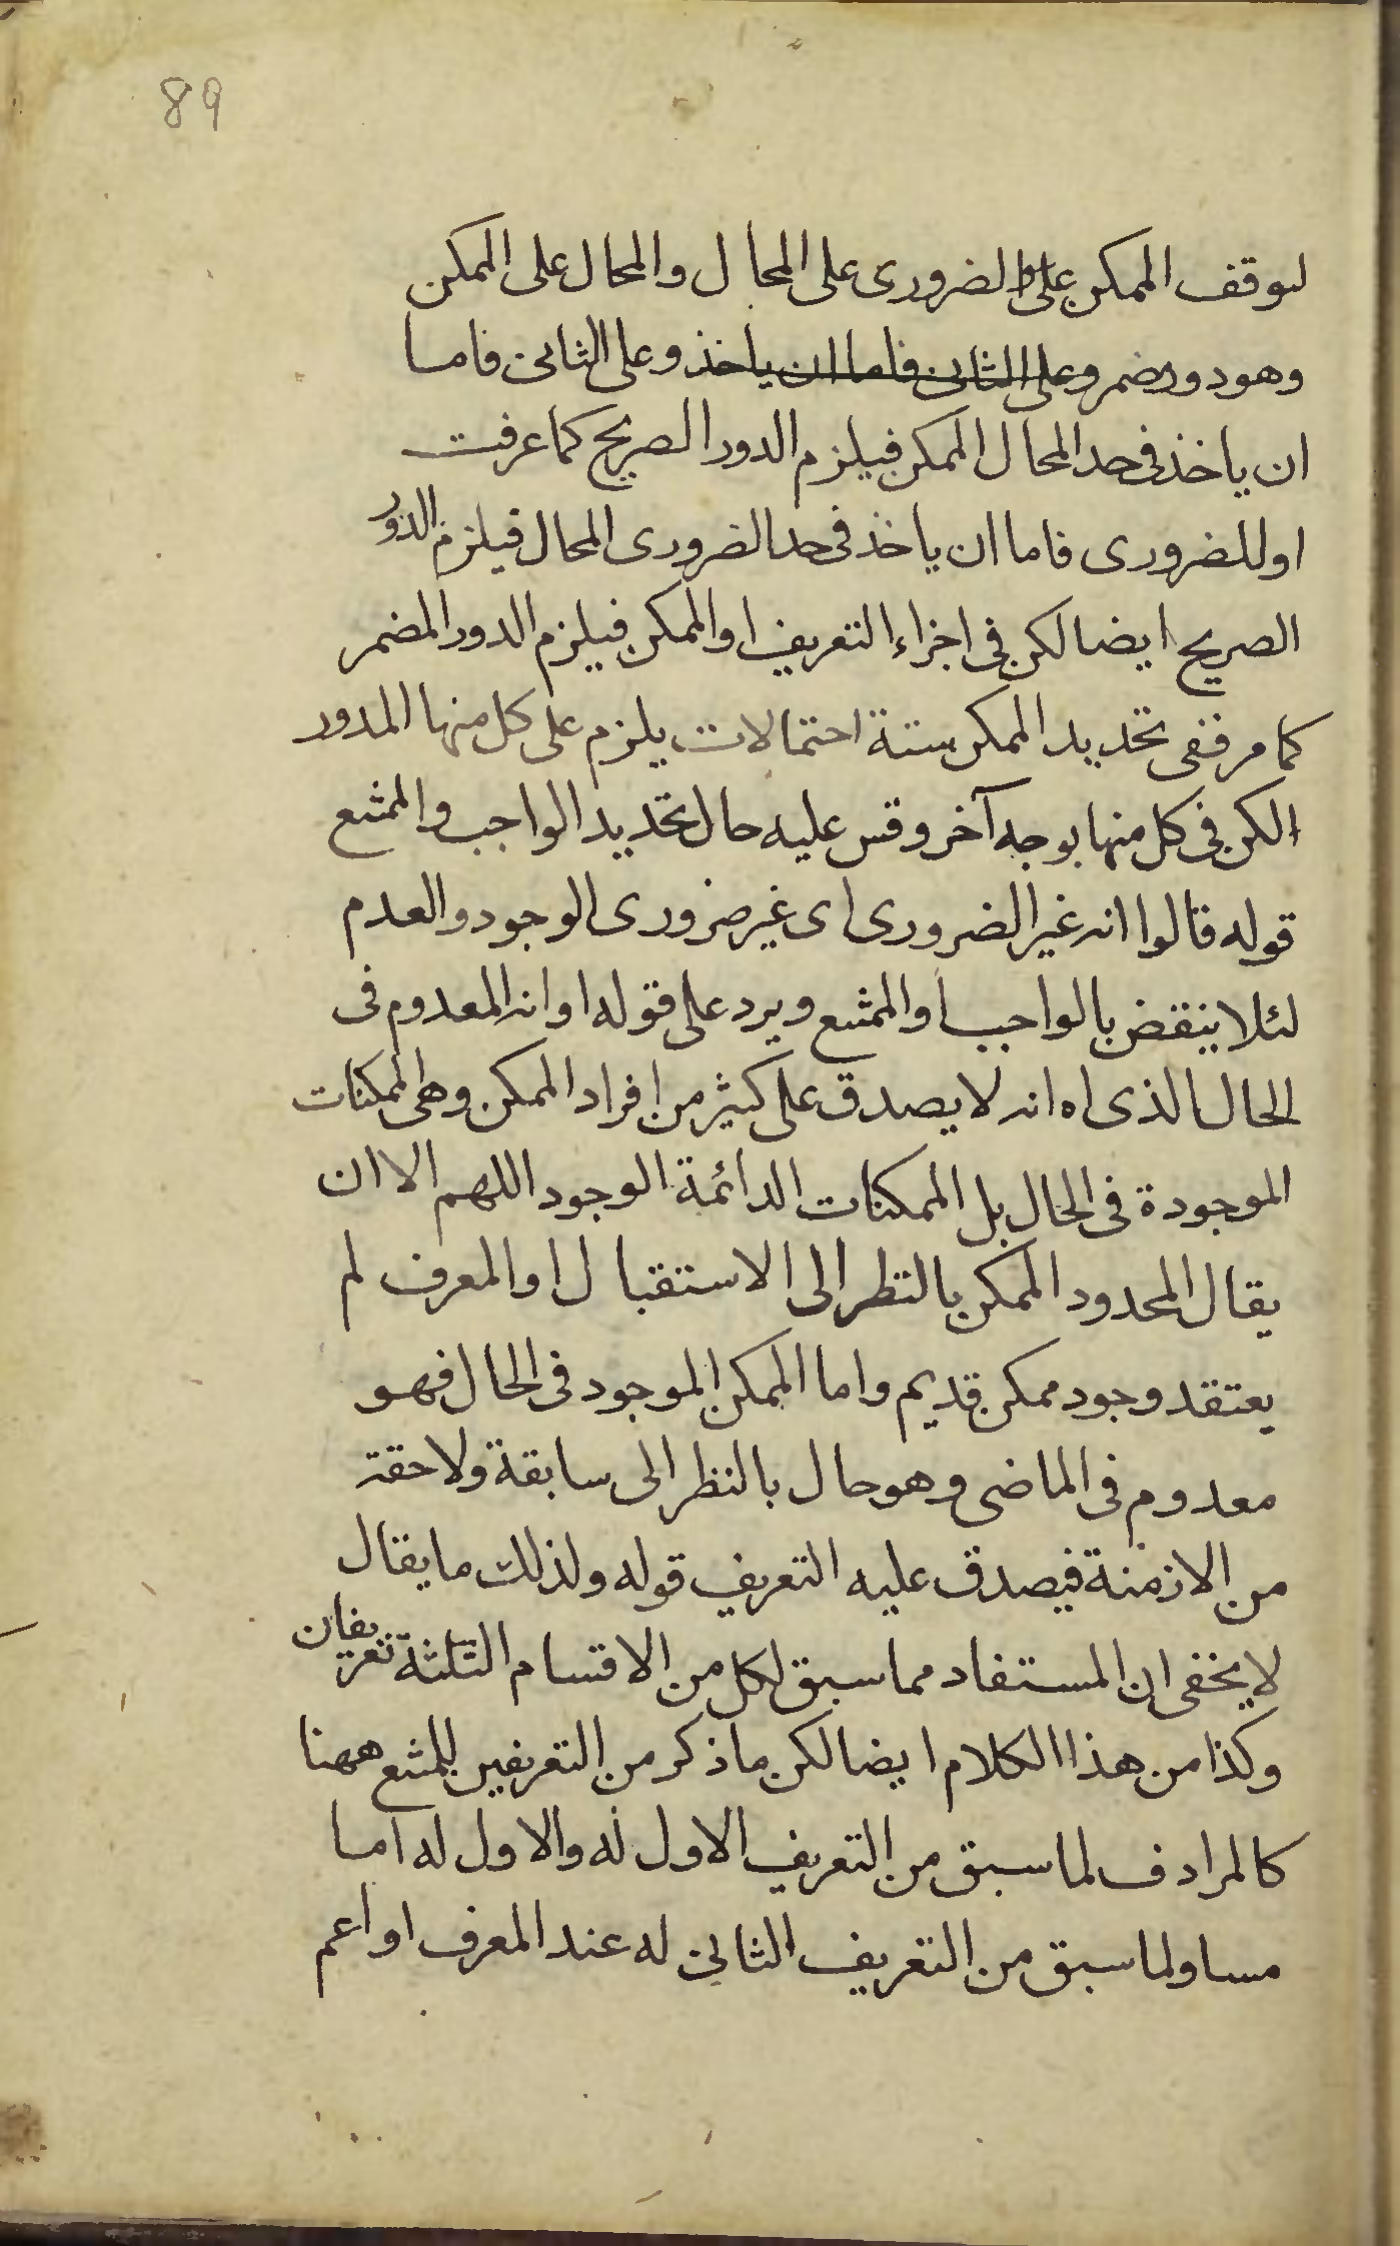 89
لتوقف الممكن على الضرورى على المحال والمحال على الممكن
وهو دور مضمر وعلى الثانى فاما ان ياخذ وعلى الثانى فاما
ان ياخذ فى حد المحال الممكن فيلزم الدور الصريح كما عرفت
او للضرورى فاما ان ياخذ فى حد الضرورى المحال فيلزم الدور
الصريح ايضا لكن فى اجزاء التعريف او الممكن فيلزم الدور المضمر
كما مر ففى تحديد الممكن ستة احتمالات يلزم على كل منها المدور
الكن فى كل منها بوجه آخر وقس عليه حال تحديد الواجب والممتنع
قوله قالوا انه غير الضرورى اى غير ضرورى الوجود والعدم
لئلا ينقض بالواجب او الممتنع ويرد على قوله او انه المعدوم فى
الحال الذى اه انه لا يصدق على كثير من افراد الممكن وهى الممكنات
الموجودة فى الحال بل الممكنات الدائمة الوجود اللهم الا ان
يقال المحدود الممكن بالنظر الى الاستقبال او المعرف لم
يعتقد وجود ممكن قديم واما الممكن الموجود فى الحال فهو
معدوم فى الماضى وهو حال بالنظر الى سابقة ولاحقة
من الازمنة فيصدق عليه التعريف قوله ولذلك ما يقال
لا يخفى ان المستفاد مما سبق لكل من الاقسام الثلثة تعريفان
وكذا من هذا الكلام ايضا لكن ما ذكر من التعريفين للمتنع ههنا
كالمرادف لما سبق من التعريف الاول له والاول له اما
مساو لما سبق من التعريف الثانى له عند المعرف او اعم